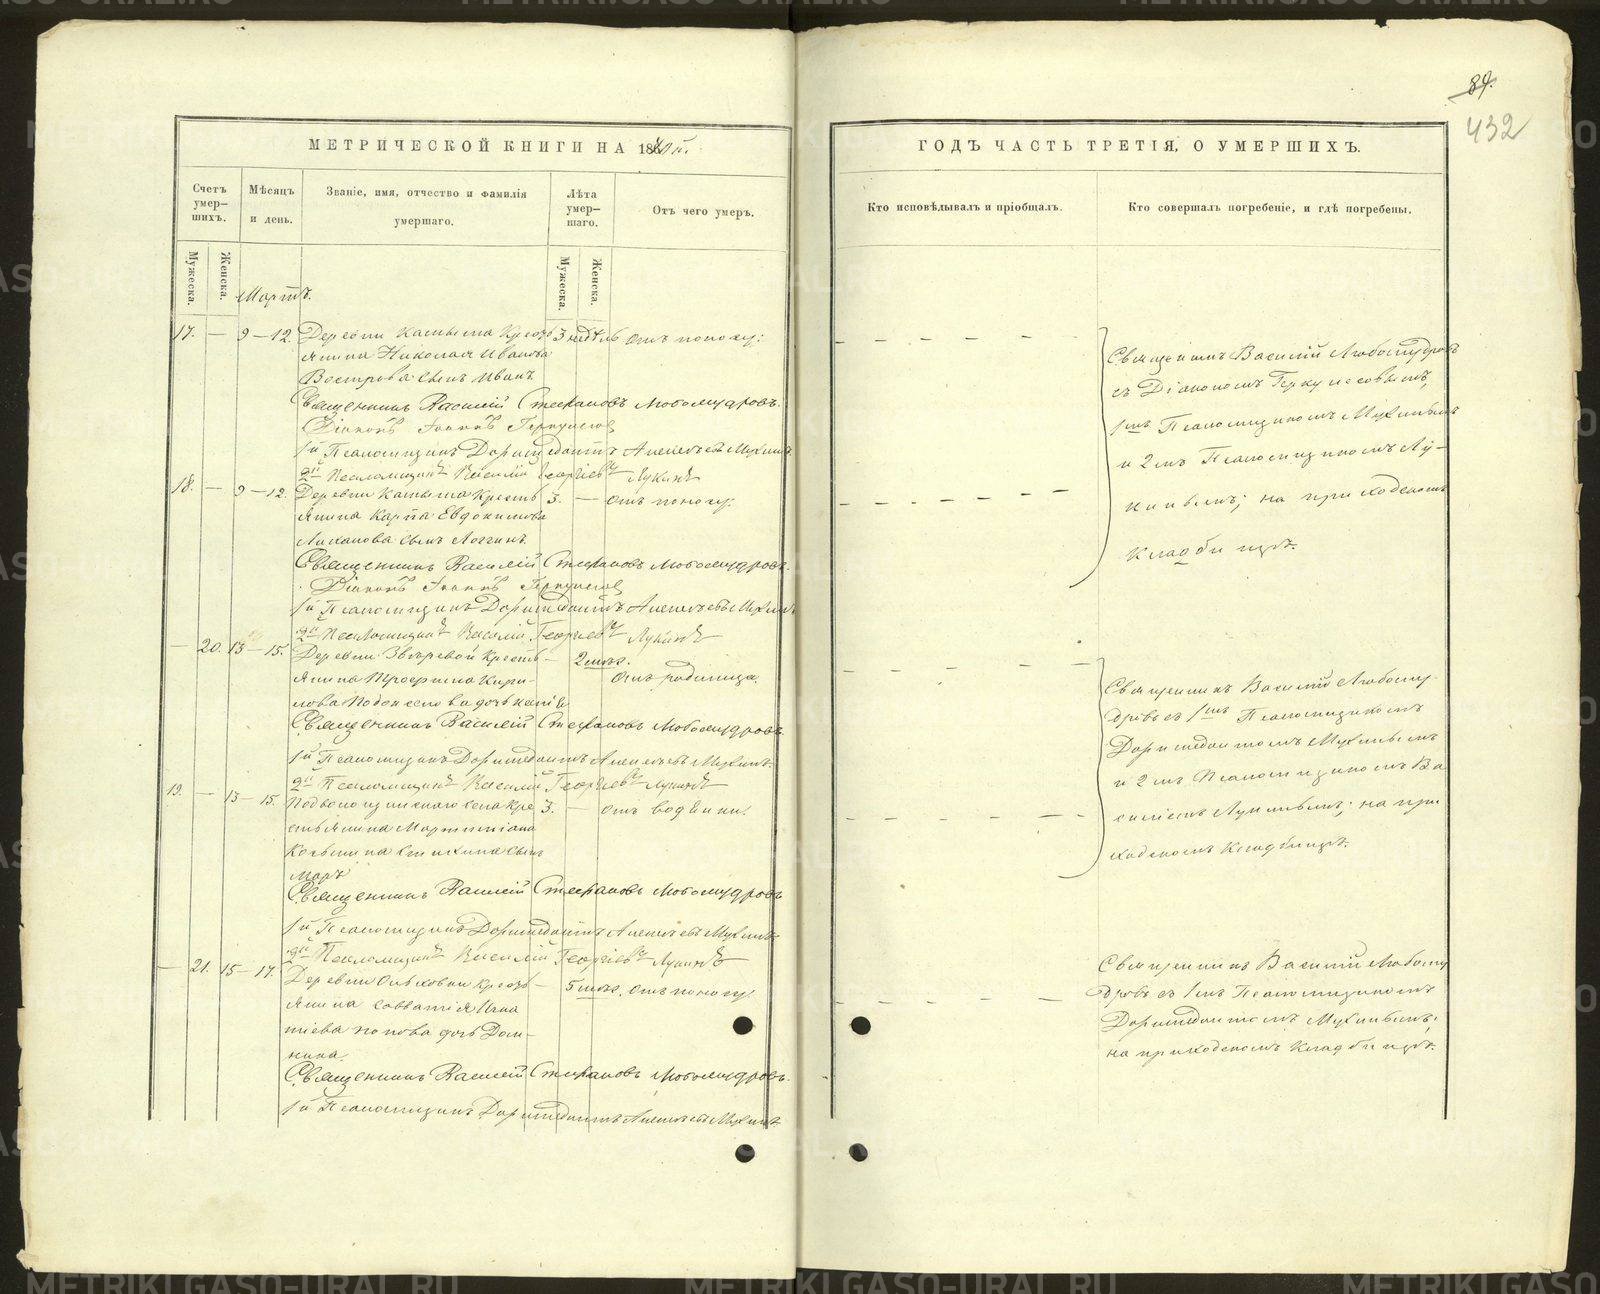 84.
432
МЕТРИЧЕСКОЙ КНИГИ НА 18
ГОДЪ ЧАСТЬ ТРЕТІЯ, О УМЕРШИХЪ.
Счетъ умер–шихъ.
Мѣсяцъ и день.
Званіе, имя, отчество и фамилія умершаго.
Лѣта умер–шаго.
Отъ чего умеръ.
Кто исповѣдывалъ и пріобщалъ.
Кто совершалъ погребеніе, и гдѣ погребены.
Мужеска.
Женска.
Мужеска.
Женска.
Мартъ.
17. — 9 — 12. Деревни Крестья 3 недѣль отъ поносу:
янина Николая Иванова
Вострова сынъ Иванъ
Священникъ Василій Стефановъ Любомудровъ.
Діаконъ Іоаннъ Геркулесовъ
1й Псаломщикъ Доримедонтъ Алексѣевъ Мухинъ
2й Псаломщикъ Василій Георгіевъ Лукинъ
18. — 9 — 12. Деревни Кресть 3. — отъ поносу.
янина Карпа Евдокимова
сынъ Логгинъ.
Священникъ Василій Стефановъ Любомудровъ.
Діаконъ Іоаннъ Геркулесовъ
1й Псаломщикъ Доримедонтъ Алексѣевъ Мухинъ
2й Псаломщикъ Василій Георгіевъ Лукинъ
— 20. 13 — 15. Деревни Звѣревой Кресть — 2 мѣс.
янина Трофима Кири– отъ родимца.
лова дочь
Священникъ Василій Стефановъ Любомудровъ.
1й Псаломщикъ Доримедонтъ Алексѣевъ Мухинъ.
2й Псаломщикъ Василій Георгіевъ Лукинъ
19. — 13 — 15. села Кре 3. — отъ водянки.
стьянина Мартиніана
сынъ
Маръ
Священникъ Василій Стефановъ Любомудровъ
1й Псаломщикъ Доримедонтъ Алексѣевъ Мухинъ
2й Псаломщикъ Василій Георгіевъ Лукинъ
— 21. 15 — 17. Деревни Ольховки Кресть — 5 мѣс. отъ поносу.
янина Савватія Игна
тіева Попова дочь Дом–
нина.
Священникъ Василій Стефановъ Любомудровъ.
1й Псаломщикъ Доримедонтъ Алексѣевъ Мухинъ.
Священникъ Василій Любомудровъ
съ Діакономъ Геркулесовымъ,
1мъ Псаломщикомъ Мухинымъ
и 2мъ Псаломщикомъ Лу–
кинымъ; на приходскомъ
Кладбищѣ.
Священникъ Василій Любому–
дровъ съ 1мъ Псаломщикомъ
Доримедонтомъ Мухинымъ
и 2мъ Псаломщикомъ Ва
силіемъ Лукинымъ; на при
ходскомъ Кладбищѣ.
Священникъ Василій Любому
дровъ съ 1мъ Псаломщикомъ
Доримедонтомъ Мухинымъ;
на приходскомъ Кладбищѣ.
METRIKI.GASO-URAL.RU